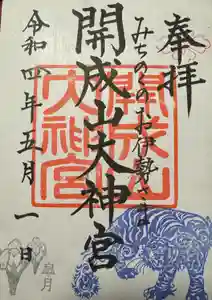 奉拝
みちのくのお伊勢さま
開成山大神宮
令和四年五月一日
開成山大神宮
皐月